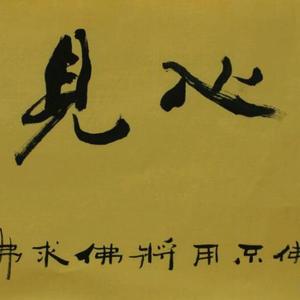 心見
佛用將佛求佛